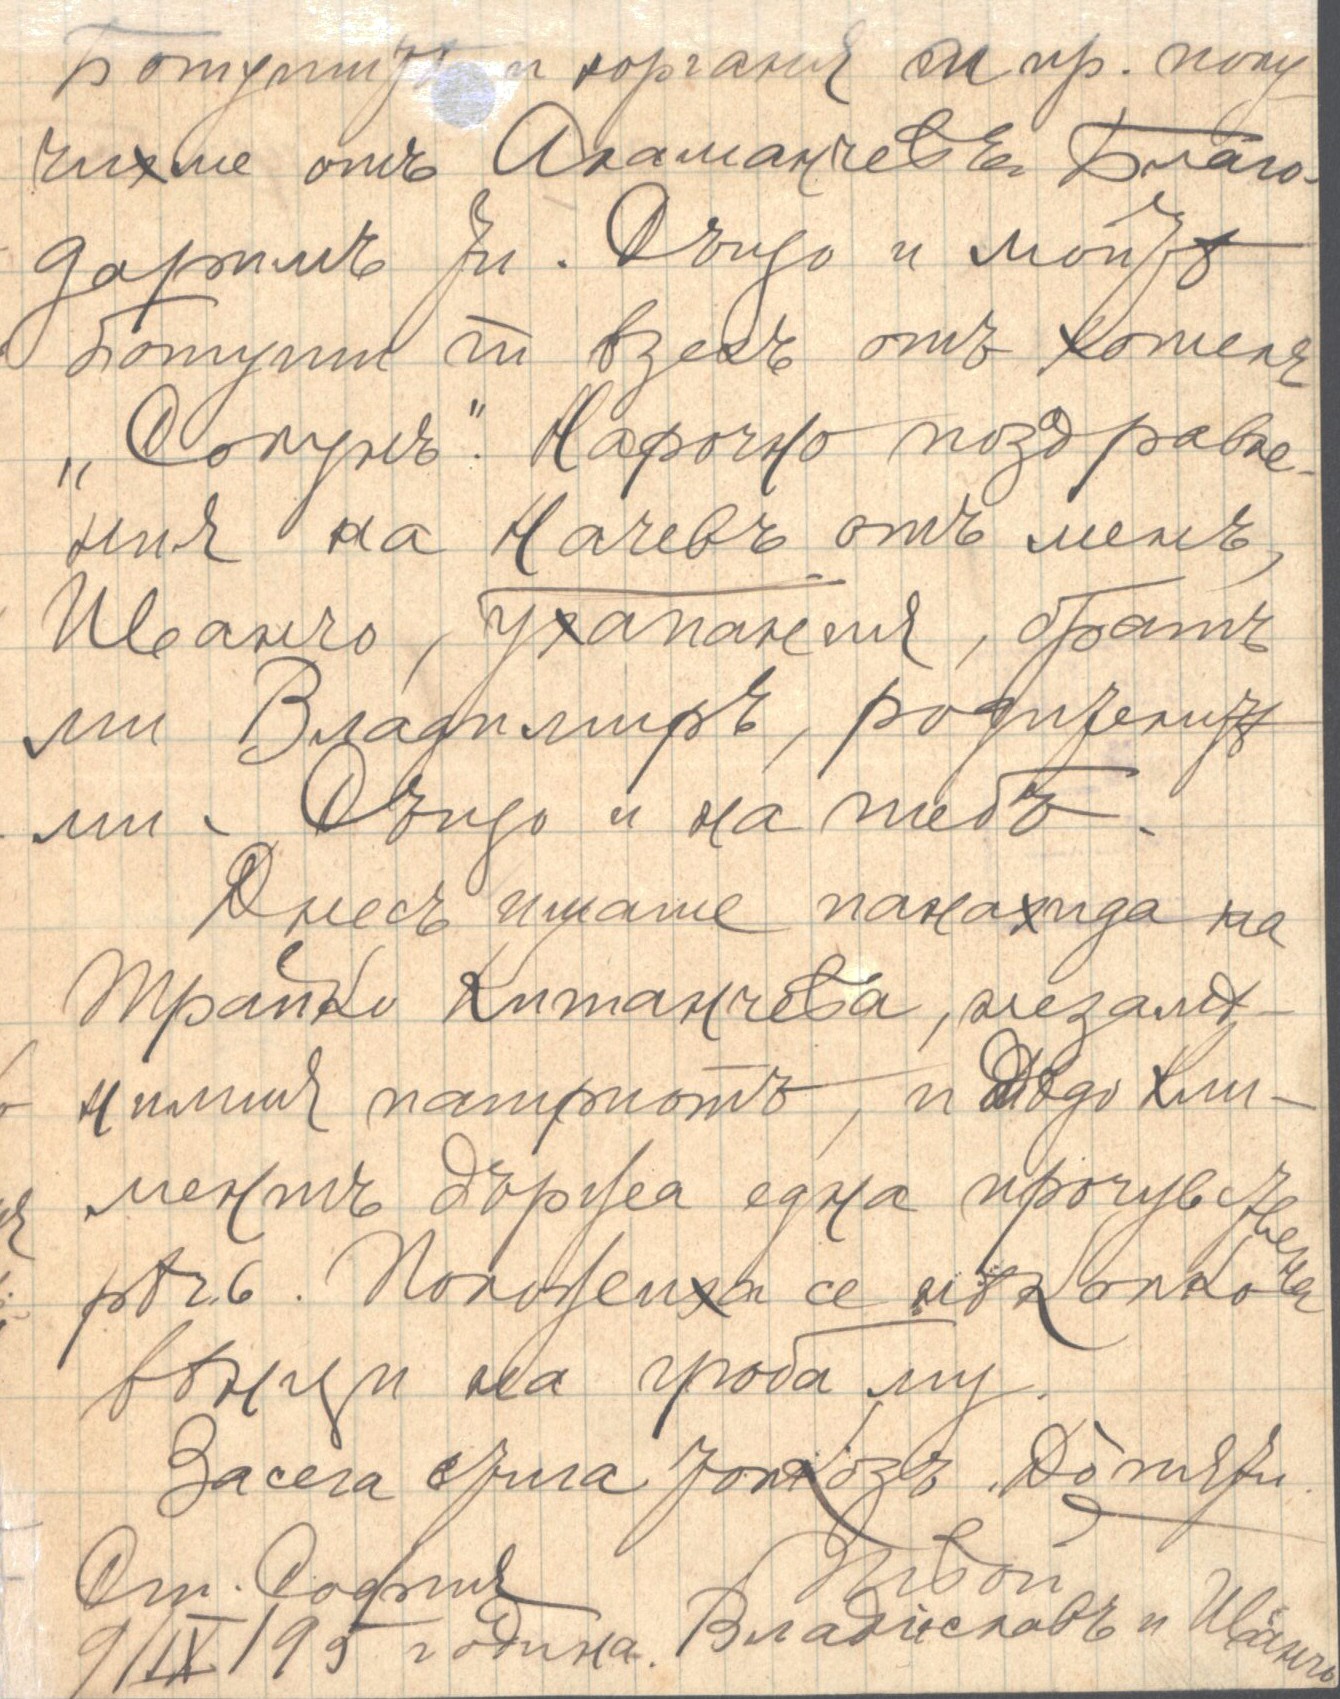 Ботушитѣ и юрганя ти пр. полу
чихме отъ Акаманчевъ. Благо-
даримъ ти. Сѫщо и моитѣ
ботуши ги взехъ отъ хотеля
„Солунъ“. Нарочно поздравле-
ния на Начевъ отъ менъ,
Иванчо, ухапания, братъ
ми Владимиръ, родителитѣ
ми. Сѫщо и на тебъ.
Днесъ имаше панахида на
Трайко Китанчева, незамѣ-
нимия патриотъ, и Дѣдо Кли-
ментъ държеа една прочувствена
рѣчь. Положиха се нѣколко
вѣнци на гроба му.
Засега стига толкозъ. Дописти.
От. София Твои
9/IX/95 година. Владиславъ и Иванчо